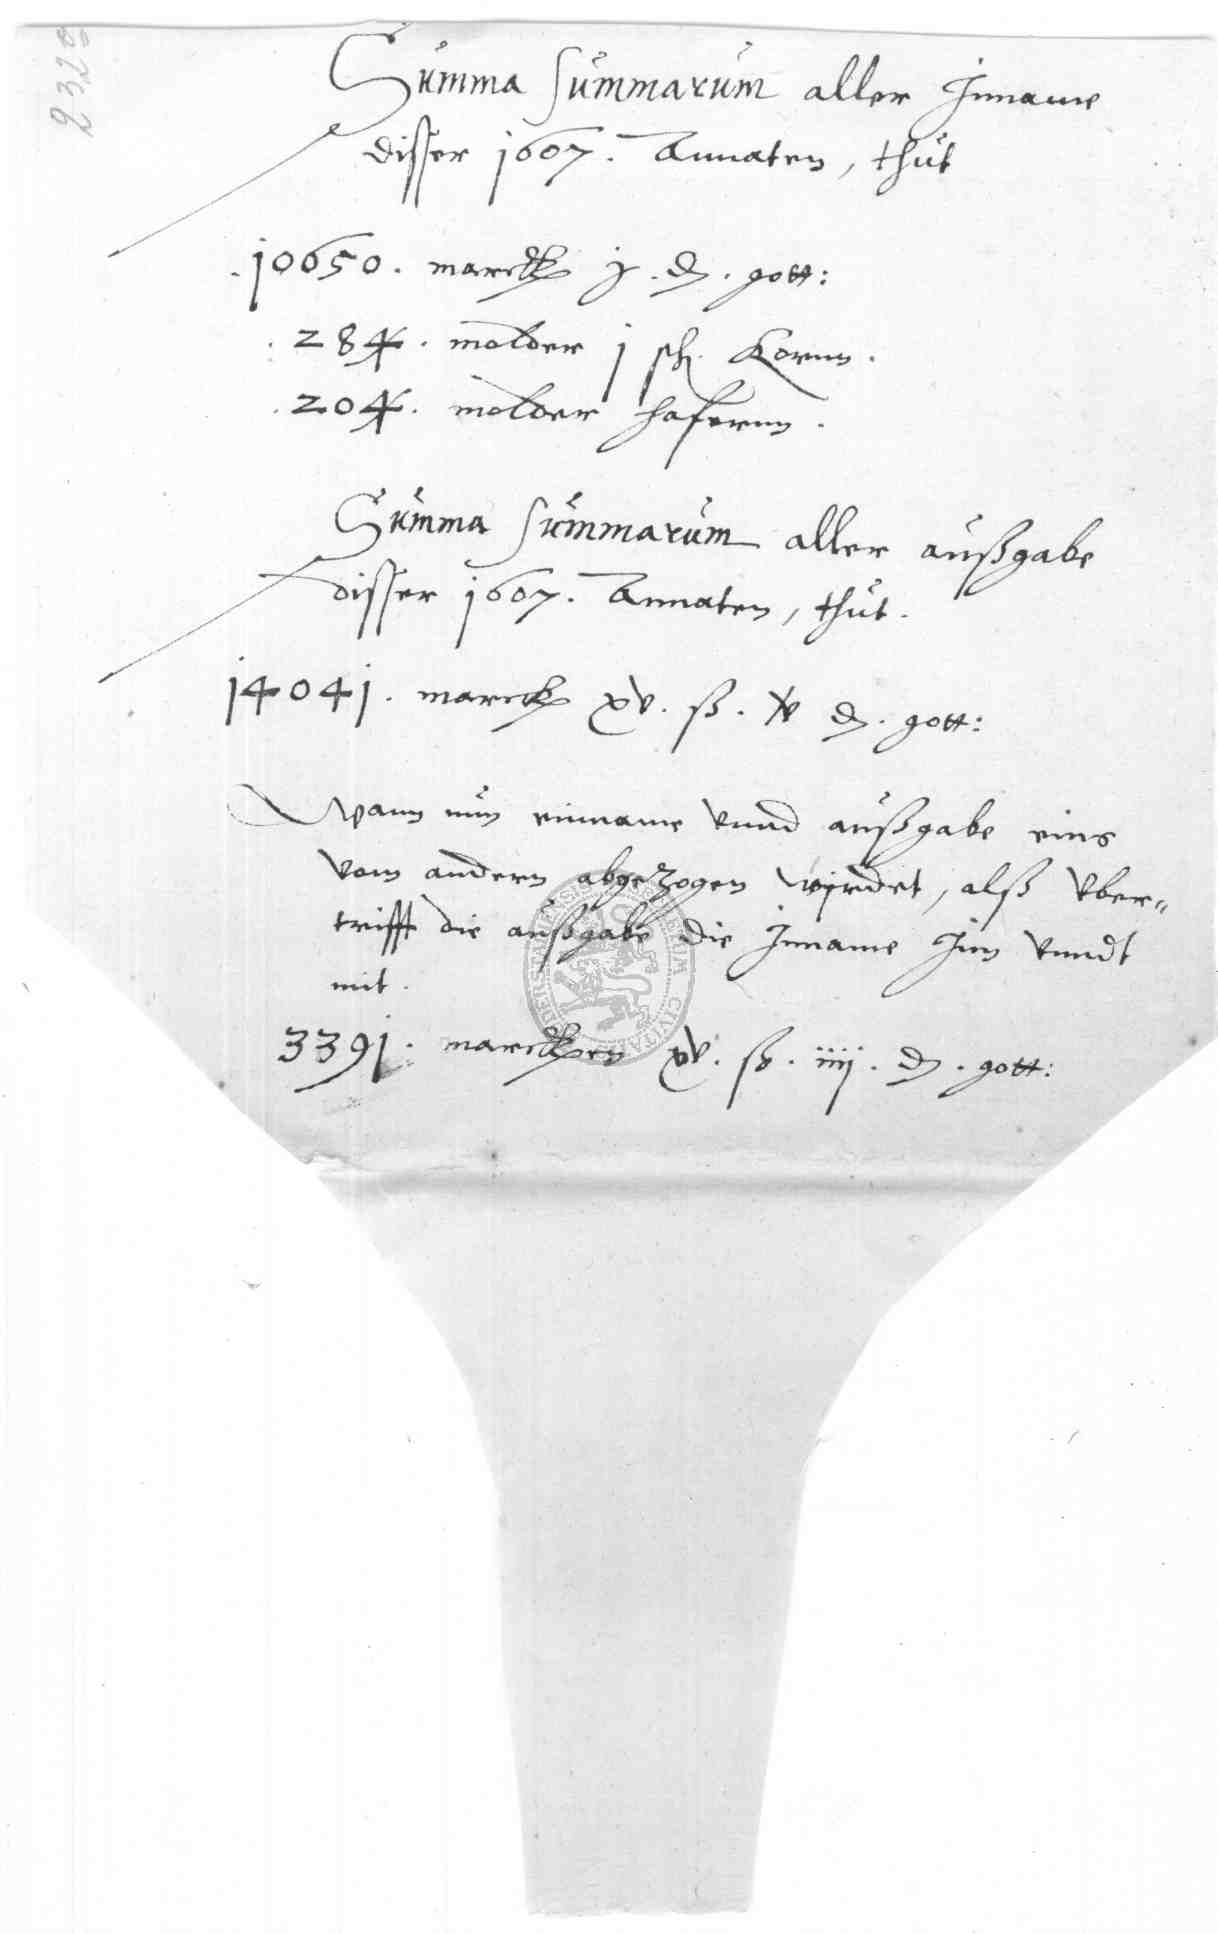 2320
Summa Summarum aller Inname
disser 1607. Annaten, thut
10650. marckh j. d. gott:
284. molder j sch. Kornn.
204. molder hafernn.
Summa Summarum aller außgabe
disser 1607. Annaten, thut.
14041. marckh xv. ß. v d. gott:
Wann nun einname vnnd außgabe eins
vom andern abgezogen wirdet, alß vber-
trifft die außgabe die Inname Inn vnndt
mit.
3391. marckhen xv. ß. iiij. d. gott: